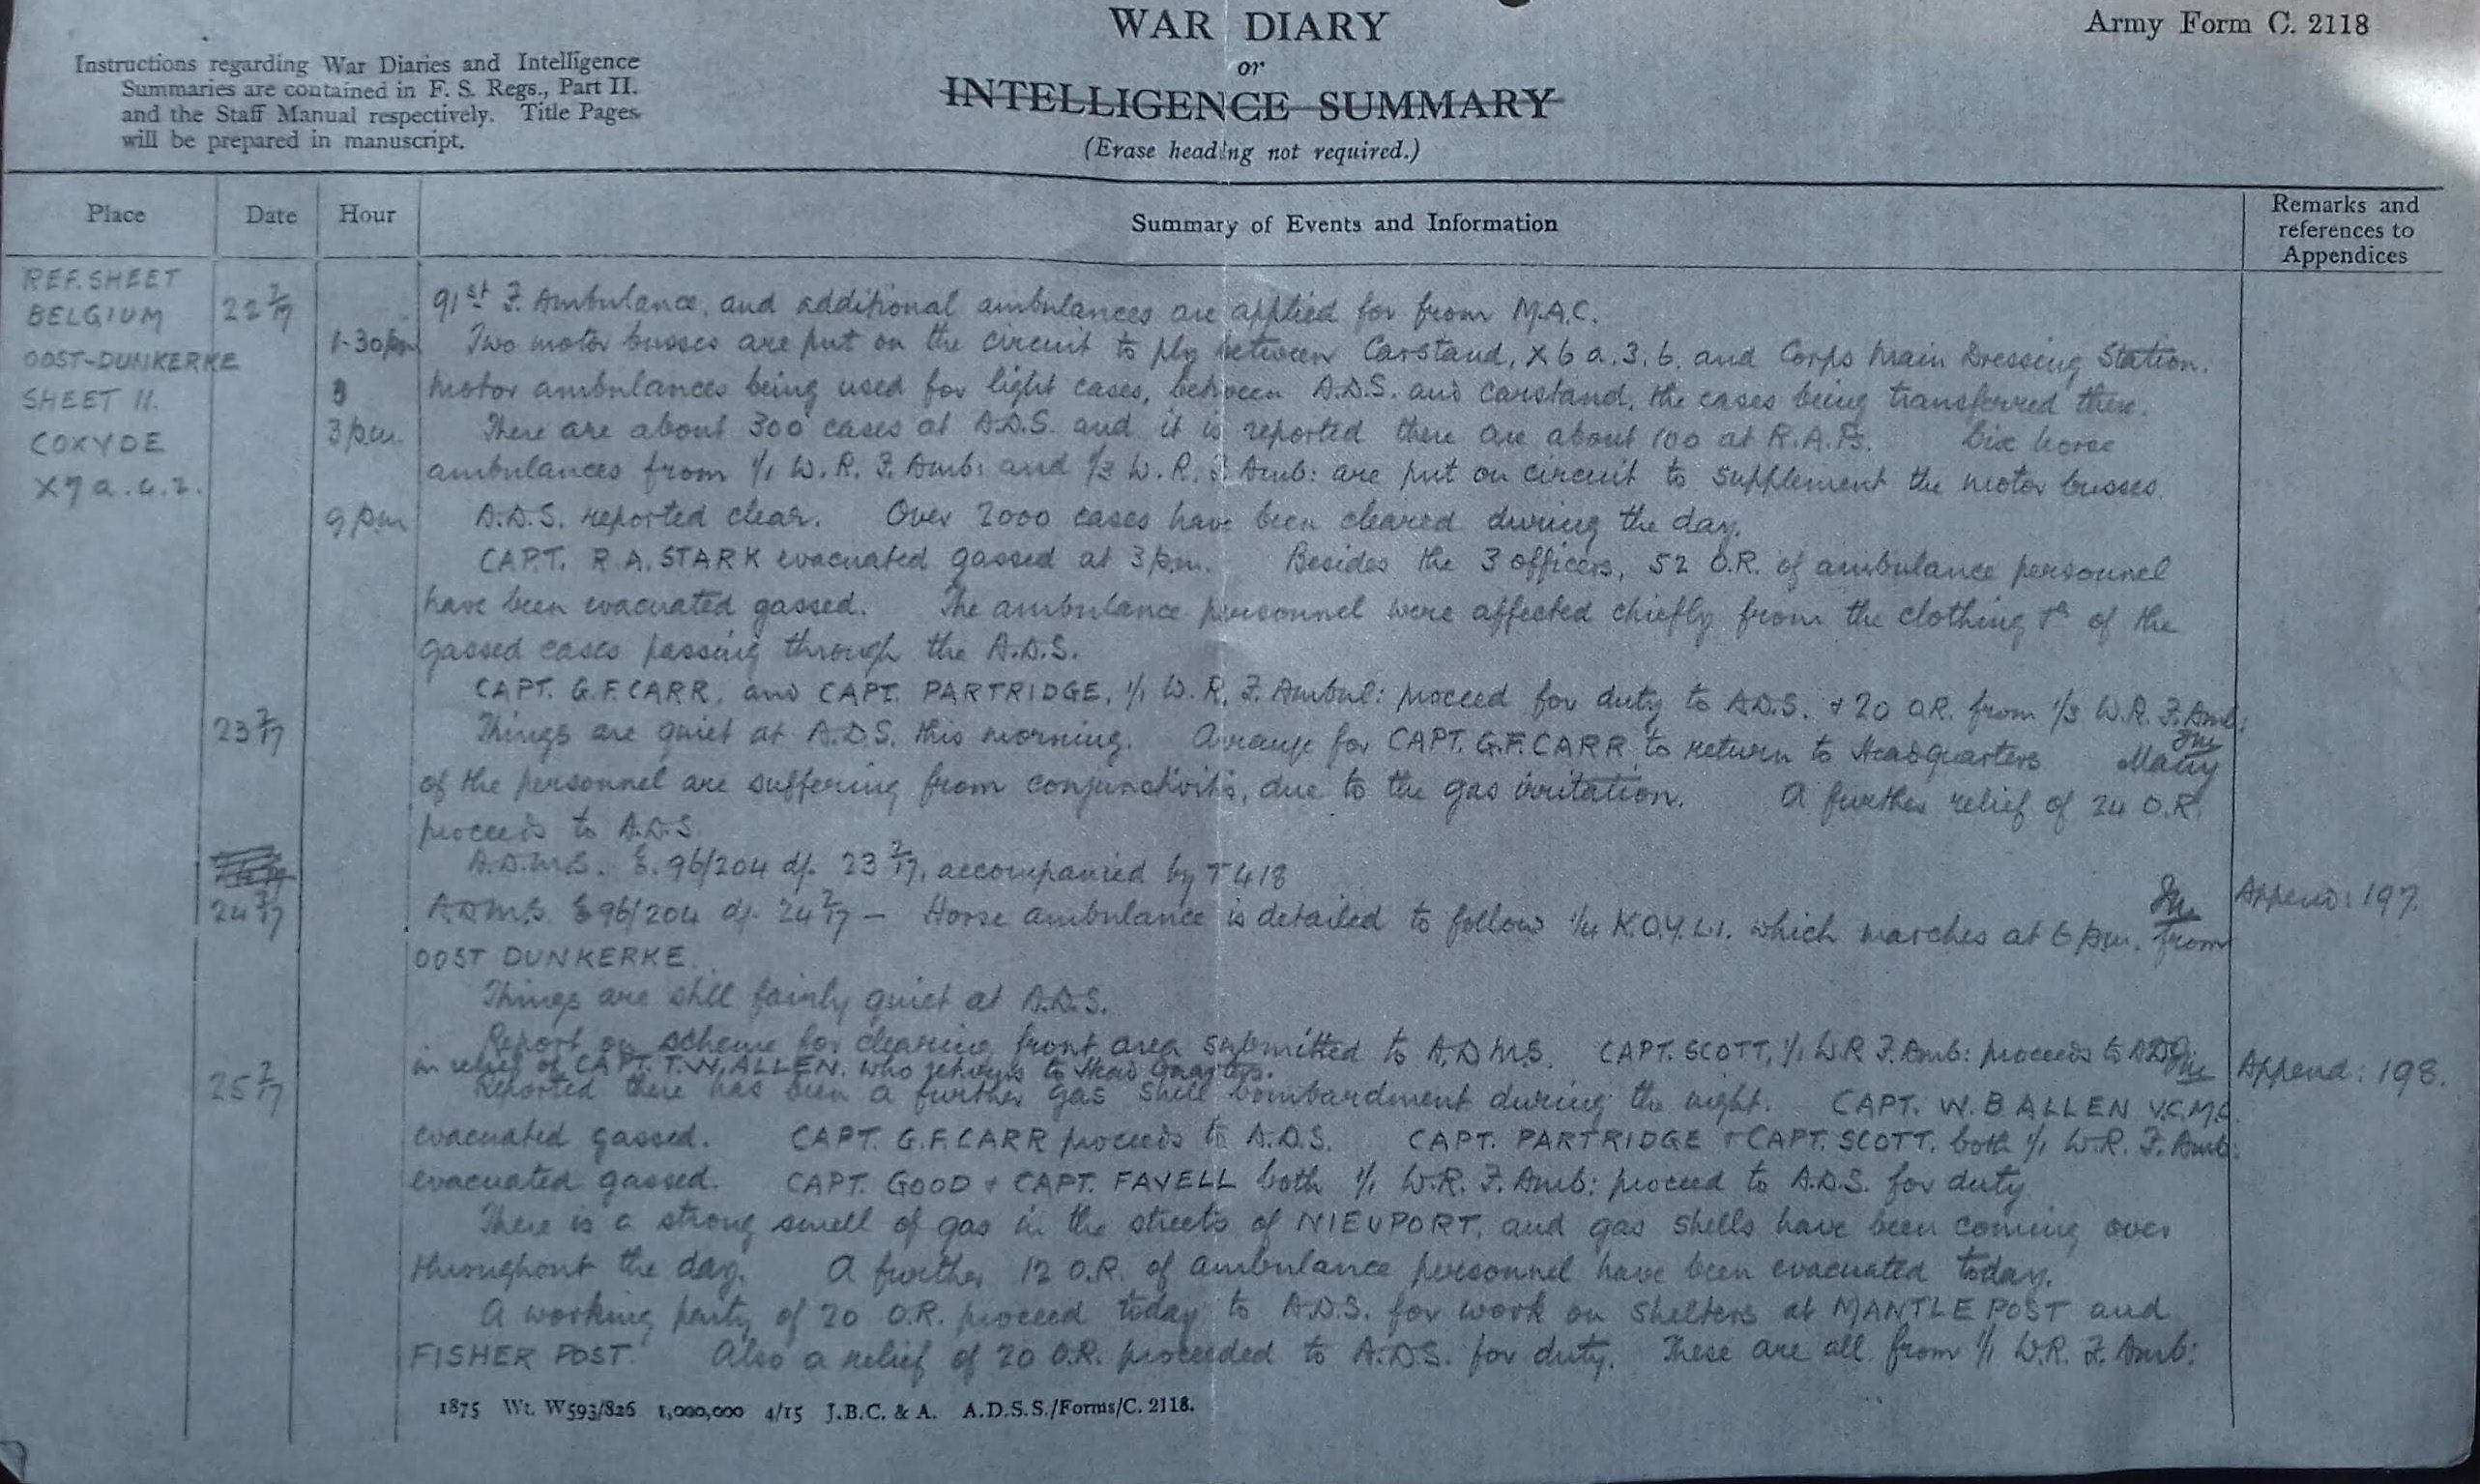 WAR DIARY
or
INTELLIGENCE SUMMARY
(Erase heading not required.)
Army Form C. 2118
Instructions regarding War Diaries and Intelligence
Summaries are contained in F. S. Regs., Part II.
and the Staff Manual respectively. Title Pages
will be prepared in manuscript.
Place Date Hour Summary of Events and Information Remarks and references to Appendices
REF. SHEET
BELGIUM
OOST-DUNKERKE
SHEET 11.
COXYDE
X 7 a. 4. 2.
22 7/17 91st F. Ambulance, and additional ambulances are applied for from M.A.C.
1-30pm Two motor busses are put on the circuit to ply between Carstand, X 6 a. 3. 6. and Corps Main Dressing Station.
motor ambulances being used for light cases, between A.D.S. and Carstand, the cases being transferred there.
3 pm. There are about 300 cases at A.D.S. and it is reported there are about 100 at R.A.Ps. Six horse
ambulances from 1/1 W. R. F. Amb: and 1/3 W. R. F. Amb: are put on circuit to supplement the motor busses.
9 pm A.D.S. reported clear. Over 2000 cases have been cleared during the day.
CAPT. R. A. STARK evacuated gassed at 3 p.m. Besides the 3 officers, 52 O.R. of ambulance personnel
have been evacuated gassed. The ambulance personnel were affected chiefly from the clothing of the
gassed cases passing through the A.D.S.
CAPT. G. F. CARR, and CAPT. PARTRIDGE, 1/1 W. R. F. Ambul: proceed for duty to A.D.S. + 20 O.R. from 1/3 W. R. F. Amb:
23 7/17 Things are quiet at A.D.S. this morning. Arrange for CAPT. G. F. CARR to return to Headquarters Many
of the personnel are suffering from conjunctivitis, due to the gas irritation. A further relief of 24 O.R.
proceeds to A.D.S.
A.D.M.S. 96/204 d/. 23 7/17, accompanied by T 418 Append: 197.
24 7/17 A.D.M.S. 96/204 d/. 24 7/17 — Horse ambulance is detailed to follow 1/4 K.O.Y.L.I. which marches at 6 pm. from
OOST DUNKERKE.
Things are still fairly quiet at A.D.S.
Report on scheme for clearing front area submitted to A.D.M.S. CAPT. SCOTT, 1/1 W.R F. Amb: proceeds to A.D.S. Append: 198.
in relief of CAPT. T. W. ALLEN. who returns to Head Quarters.
25 7/17 Reported there has been a further gas shell bombardment during the night. CAPT. W. B ALLEN V.C. M.C.
evacuated gassed. CAPT. G. F. CARR proceeds to A.D.S. CAPT. PARTRIDGE + CAPT. SCOTT. both 1/1 W.R. F. Amb:
evacuated gassed. CAPT. GOOD + CAPT. FAVELL both 1/1 W.R. F. Amb: proceed to A.D.S. for duty
There is a strong smell of gas in the streets of NIEUPORT, and gas shells have been coming over
throughout the day. A further 12 O.R. of ambulance personnel have been evacuated today.
A working party of 20 O.R. proceed today to A.D.S. for work on shelters at MANTLE POST and
FISHER POST. Also a relief of 20 O.R. proceeded to A.D.S. for duty. These are all from 1/1 W.R. F. Amb:
1875 Wt. W593/826 1,000,000 4/15 J.B.C. & A. A.D.S.S./Forms/C. 2118.